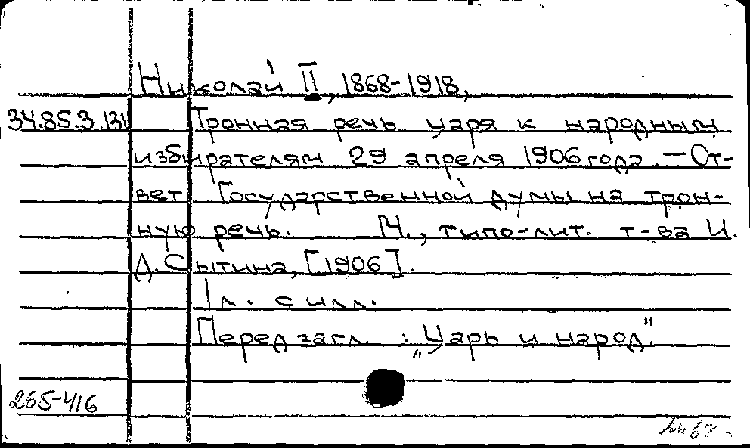 Николай II, 1868-1918,
34.85.3.131 Тронная речь царя к народным
избирателям 29 апреля 1906 года. — От-
вет Государственной думы на трон-
ную речь. М., типо-лит. т-ва И.
Д. Сытина, [1906].
1 л. с илл.
Перед загл.: „Царь и народ"
265-416